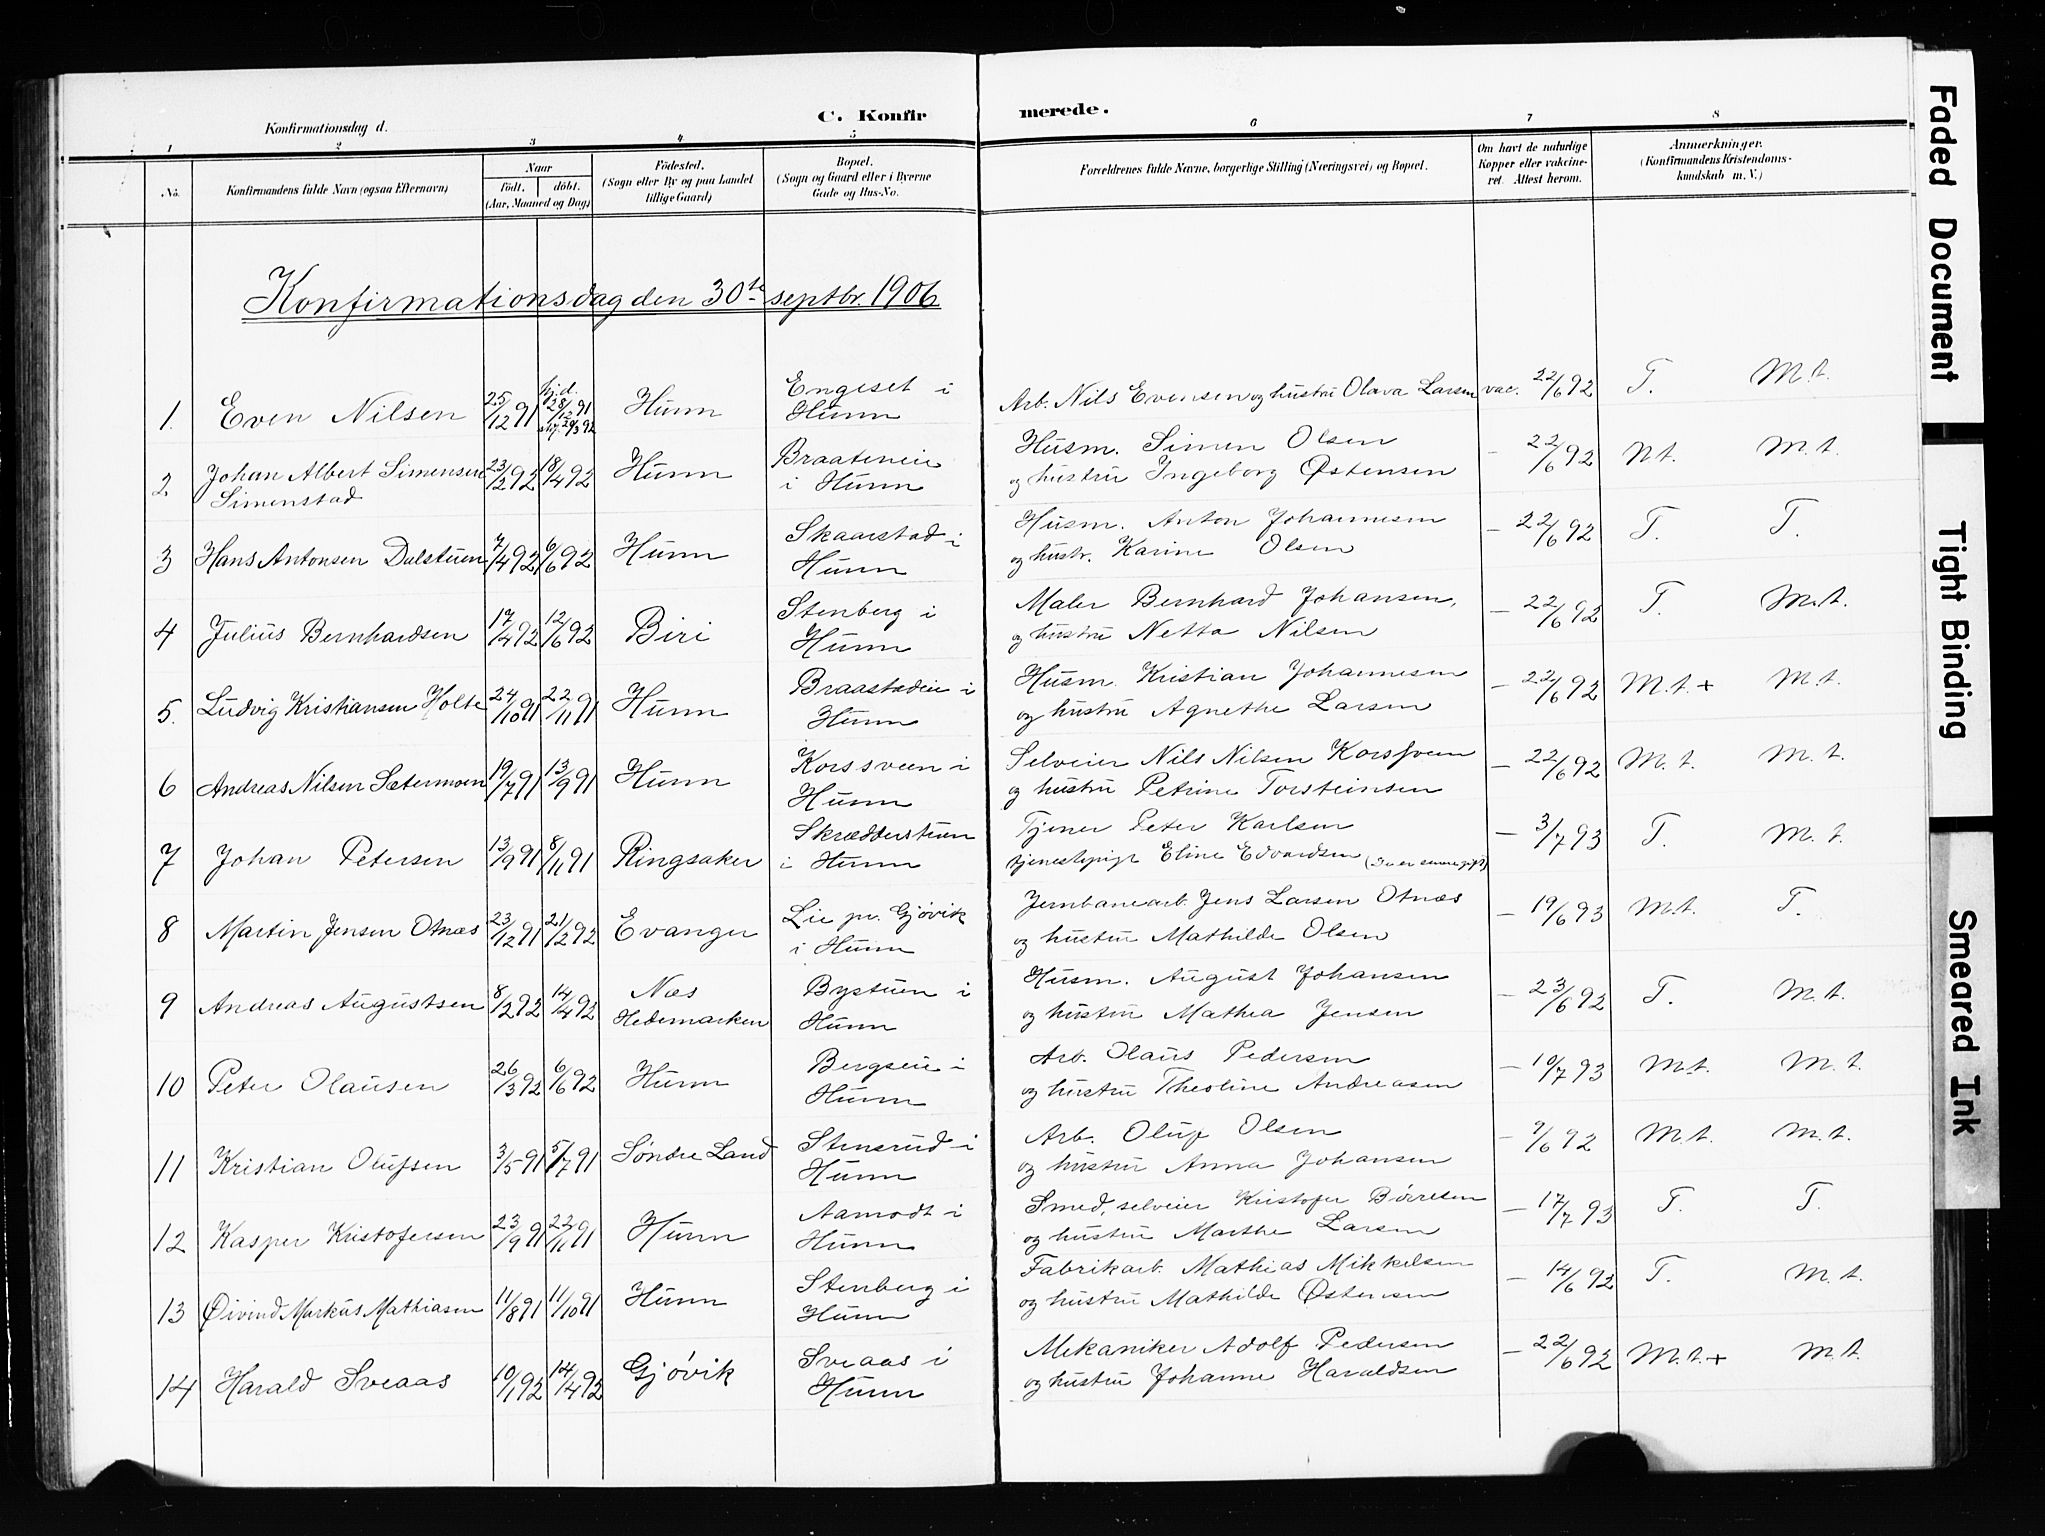 C. Konfirmerede.
Konfirmationsdag d.
1 2 3 4 5 6 7 8
No.
Konfirmandens fulde Navn (ogsaa Efternavn)
Naar
födt. döbt.
(Aar, Maaned og Dag)
Födested.
(Sogn eller By og paa Landet
tillige Gaard)
Bopæl.
(Sogn og Gaard eller i Byerne
Gade og Hus-No.
Forældrenes fulde Navne, borgerlige Stilling (Næringsvei) og Bopæl.
Om havt de naturlige
Kopper eller vaccine-
ret. Attest herom.
Anmerkninger.
(Konfirmandens Kristendoms-
kundskab m. V.)
Konfirmationsdag den 30te septbr. 1906
1. Even Nilsen 25/12 91 hj.d. 28/12 91 Hunn Engeset i Hunn Arb. Nils Evensen og hustru Olava Larsen vac. 22/6 92 T. M.t.
2. Johan Albert Simensen 23/2 92 18/4 92 Hunn Braateneie Husm. Simen Olsen - 22/6 92 Nt. M.t.
Simenstad i Hunn og hustru Ingeborg Østensen
3 Hans Antonsen Dalstuen 7/4 92 6/6 92 Hunn Skaarstad i Husm. Anton Johannesen - 22/6 92 T. T.
Hunn og hustr. Karine Olsen
4 Julius Bernhardsen 17/4 92 12/6 92 Biri Stenberg i Maler Bernhard Johansen, - 22/6 92 T. M.t.
Hunn og hustru Netta Nilsen
5. Ludvig Kristiansen Holte 24/10 91 22/11 91 Hunn Braastadeie i Husm. Kristian Johannesen - 22/6 92 M.t.+ M.t.
Hunn og hustru Agnethe Larsen
6 Andreas Nilsen Sætermoen 19/7 91 13/9 91 Hunn Korssveen i Selveier Nils Nilsen Korssveen - 22/6 92 M.t. M.t.
Hunn og hustru Petrine Torsteinsen
7 Johan Petersen 13/9 91 8/11 91 Ringsaker Skrædderstuen Tjener Peter Karlsen - 3/7 93 T. M.t.
i Hunn tjenestepige Eline Edvardsen (De er senere gift)
8 Martin Jensen Otnæs 23/12 91 21/2 92 Evanger Lie pr. Gjøvik Jernbanearb. Jens Larsen Otnæs - 19/6 93 M.t. T.
i Hunn og hustru Mathilde Olsen
9 Andreas Augustsen 8/2 92 14/4 92 Næs Bystuen i Husm. August Johansen - 23/6 92 T. M.t.
Hedemarken Hunn og hustru Mathea Jensen
10 Peter Olausen 26/3 92 6/6 92 Hunn Bergseie i Arb. Olaus Pedersen - 10/7 93 M.t. M.t.
Hunn og hustru Theoline Andreasen
11 Kristian Olufsen 3/5 91 5/7 91 Søndre Land Stensrud i Arb. Oluf Olsen - 9/6 92 M.t. M.t.
Hunn og hustru Anna Johansen
12 Kasper Kristofersen 23/9 91 22/11 91 Hunn Aamodt i Smed, selveier Kristofer Børresen - 17/7 93 T. T.
Hunn og hustru Marthe Larsen
13 Øivind Markus Mathiasen 11/8 91 11/10 91 Hunn Stenberg i Fabrikarb. Mathias Mikkelsen - 14/6 92 T. M.t.
Hunn og hustru Mathilde Østensen
14 Harald Sveaas 10/1 92 14/4 92 Gjøvik Sveaas i Mekaniker Adolf Pedersen - 22/6 92 M.t.+ M.t.
Hunn og hustru Johanne Haraldsen
Faded Document
Tight Binding
Smeared Ink